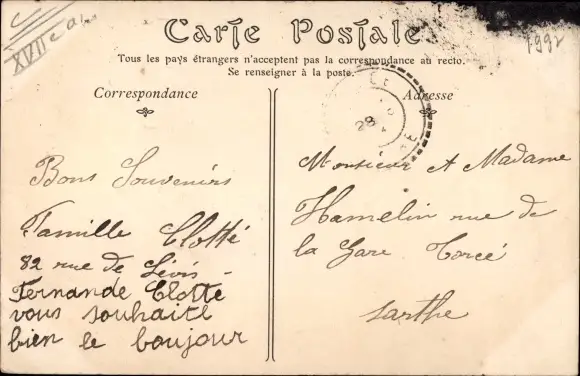 XVIIe ar
1992
Carte Postale
Tous les pays étrangers n'acceptent pas la correspondance au recto.
Se renseigner à la poste.
Correspondance
Adresse
28
Bons Souvenirs
Famille Clotté
82 rue de Lévis -
Fernande Clotte
vous souhaite
bien le boujour
Monsieur et Madame
Hamelin rue de
la Gare Torcé
Sarthe